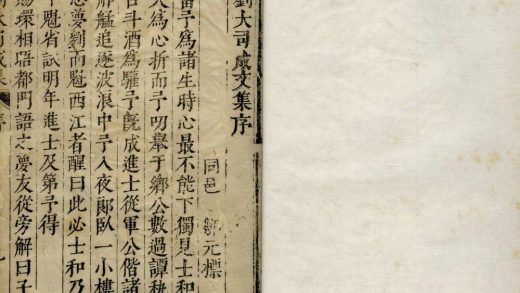 劉大司成文集序
同邑 鄒元標
予爲諸生時心最不能下獨見士和
人爲心折而予叨舉于鄉公數過譚
斗酒爲驩予旣成進士從軍公偕諸
艋追逐波浪中予入夜郞臥一小樓
夢劉而魁西江者醒曰此必士和乃
魁省試明年進士及第予得
賜環相晤都門語之夢友從旁解曰子
大司成集 序